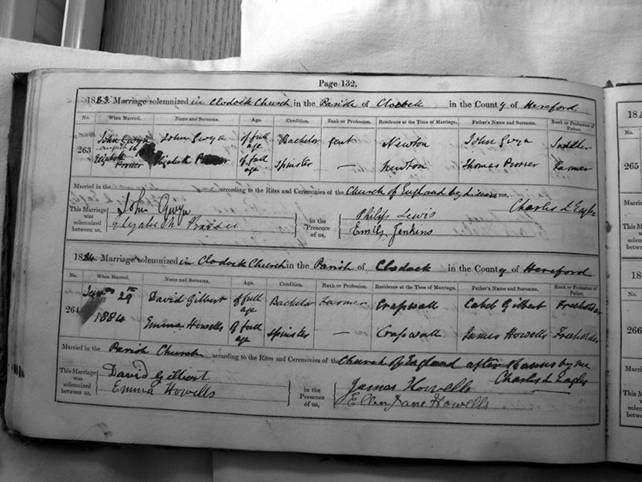 Page 132.
1883. Marriage solemnized in Clodock Church in the Parish of Clodock in the County of Hereford
No. When Married. Name and Surname. Age. Condition. Rank or Profession. Residence at the Time of Marriage. Father's Name and Surname. Rank or Profession of Father.
263 John Gwyn John Gwyn of full age Bachelor Gent Newton John Gwyn Saddler
August 16
Elizabeth Prosser Elizabeth Prosser of full age Spinster — Newton Thomas Prosser Farmer
Married in the according to the Rites and Ceremonies of the Church of England by License
Charles L Eagles
This Marriage was solemnized between us, John Gwyn Elizabeth Prosser in the Presence of us, Philip Lewis Emily Jenkins
1884. Marriage solemnized in Clodock Church in the Parish of Clodock in the County of Hereford
No. When Married. Name and Surname. Age. Condition. Rank or Profession. Residence at the Time of Marriage. Father's Name and Surname. Rank or Profession of Father.
264 29 David Gilbert of full age Bachelor Farmer Craswall Caleb Gilbert Freeholder
1884 Emma Howells of full age Spinster — Craswall James Howells Freeholder
Married in the Parish Church according to the Rites and Ceremonies of the Church of England after Banns by me
Charles L Eagles
This Marriage was solemnized between us, David Gilbert Emma Howells in the Presence of us, James Howells Ellen Jane Howells
18
No.
265
18
No.
266